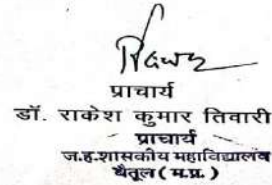 प्राचार्य
डॉ. राकेश कुमार तिवारी
प्राचार्य
ज.ह.शासकीय महाविद्यालय
बैतूल ( म.प्र. )